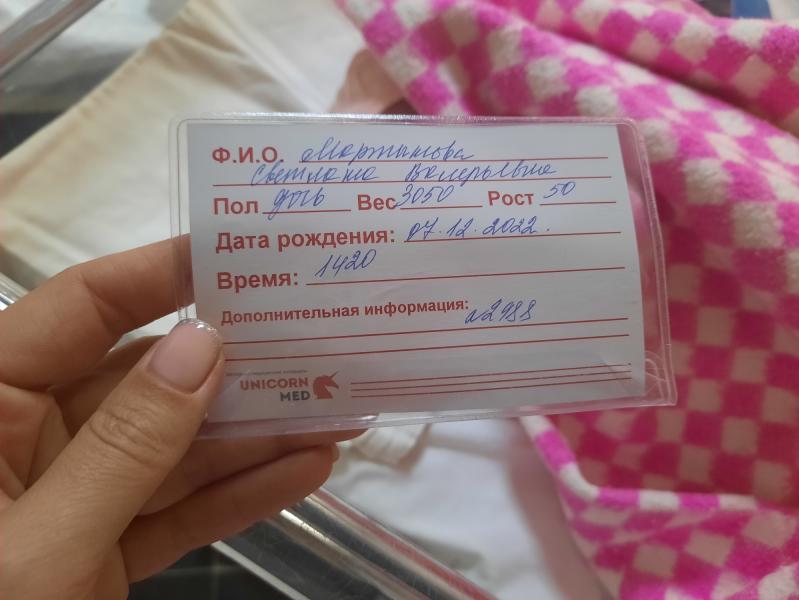 Ф.И.О. Мартынова
Светлана Валерьевна
Пол дочь Вес 3050 Рост 50
Дата рождения: 07.12.2022.
Время: 1420
Дополнительная информация:
2988
UNICORN
MED